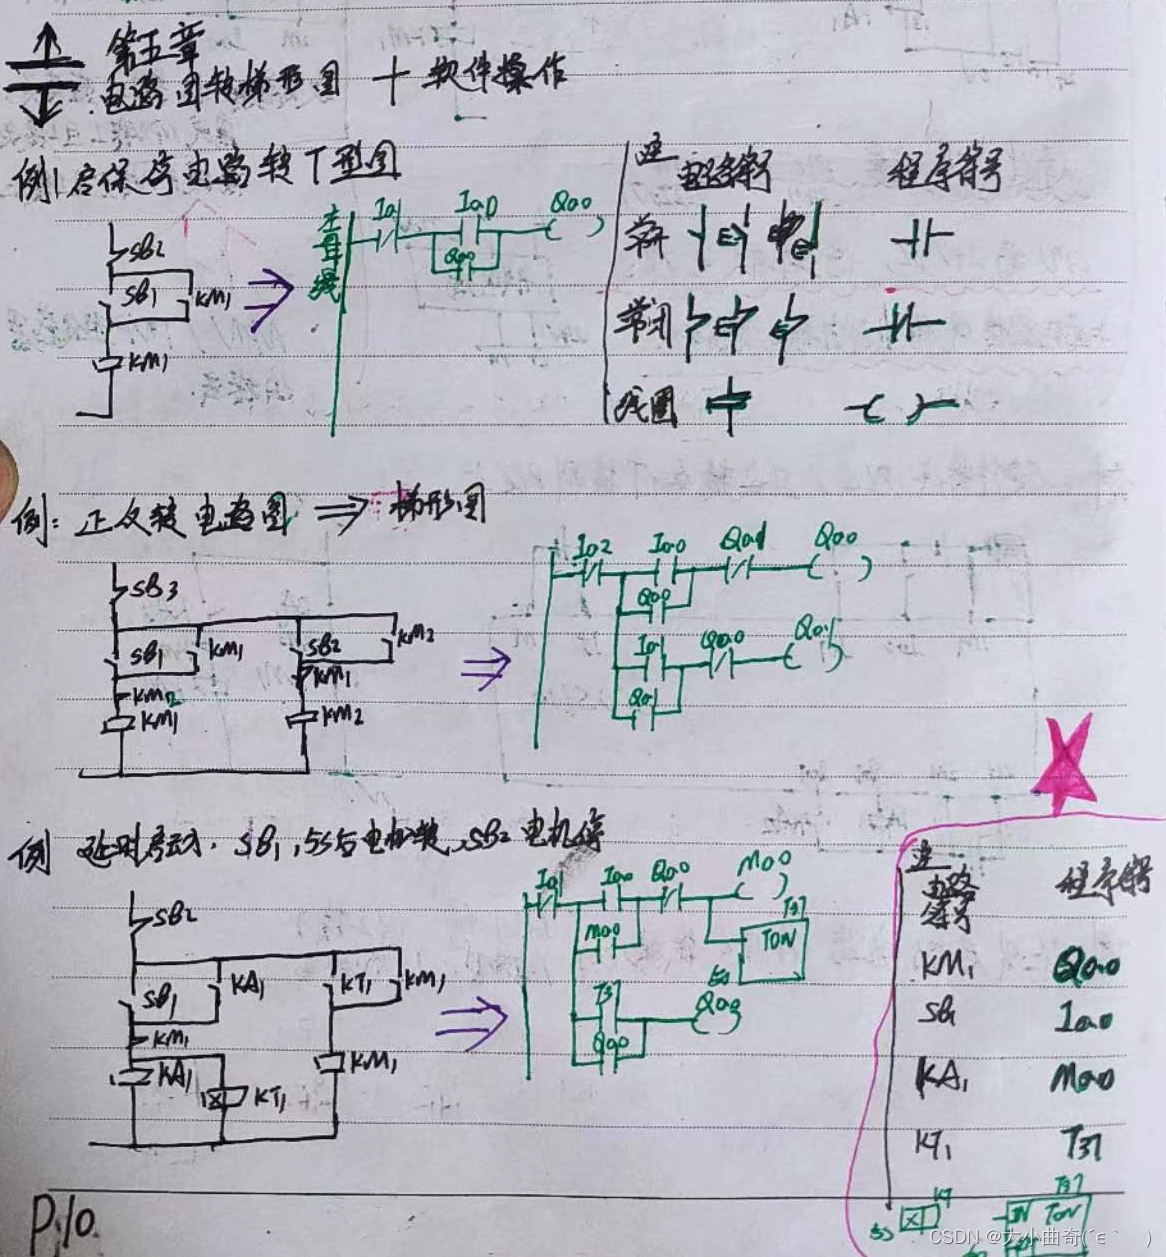 第五章
电路图转梯形图 + 软件操作
例1 启保停电路转T型图
SB2
SB1
KM1
KM1
主母线
I0.1
I0.0
Q0.0
Q0.0
电路符号
程序符号
常开
常闭
线圈
例: 正反转电路图 ⇒ 梯形图
SB3
SB1
KM1
SB2
KM2
KM2
KM1
KM1
KM2
I0.2
I0.0
Q0.1
Q0.0
Q0.0
I0.1
Q0.0
Q0.1
Q0.1
例 延时启动. SB1, 5S后电机转, SB2 电机停
SB2
SB1
KA1
KT1
KM1
KM1
KA1
KT1
KM1
I0.1
I0.0
Q0.0
M0.0
M0.0
T37
TON
5s
T37
Q0.0
Q0.0
电路符号
程序符号
KM1 Q0.0
SB1 I0.0
KA1 M0.0
KT1 T37
5s
KT
T37
IN TON
P.10
CSDN @大小曲奇(´ε｀ )